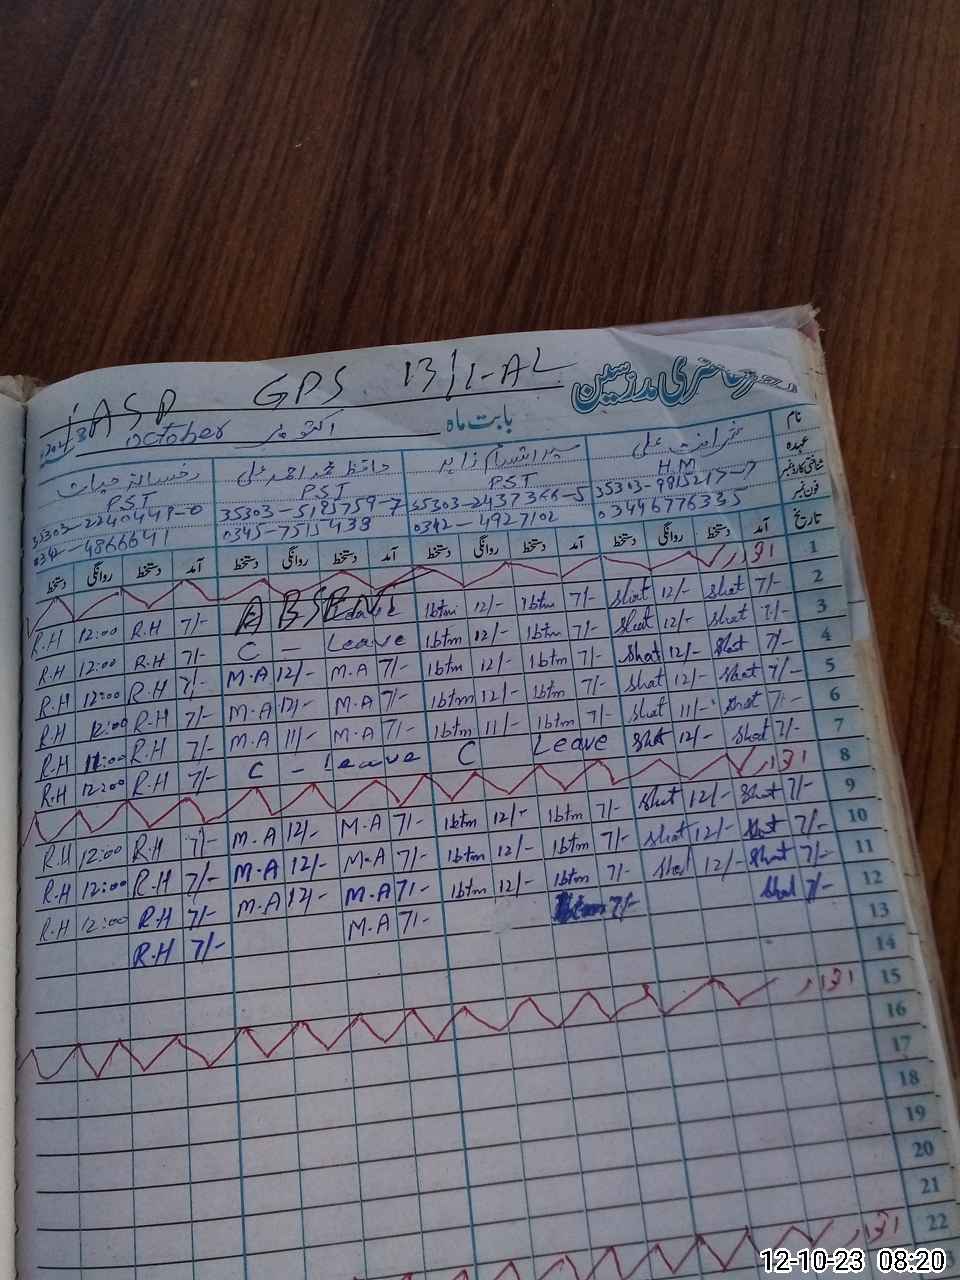 GPS 13/1-AL
حاضری مدرسین
بابت ماہ اکتوبر October
نام
عہدہ HM PST PST PST
شناختی کارڈ نمبر 35303-2437366-5 35303-5185759-7
فون نمبر 03446776335 0342-4927102 0345-7515438 0342-4866641
تاریخ آمد دستخط روانگی دستخط آمد دستخط روانگی دستخط آمد دستخط روانگی دستخط آمد دستخط روانگی دستخط
1 اتوار
2 7/- Shat 12/- Shat 7/- Ibtm 12/- Ibtm ABSENT 7/- R.H 12:00 R.H
3 7/- Shat 12/- Shat 7/- Ibtm 12/- Ibtm Leave - C 7/- R.H 12:00 R.H
4 7/- Shat 12/- Shat 7/- Ibtm 12/- Ibtm 7/- M.A 12/- M.A 7/- R.H 12:00 R.H
5 7/- Shat 12/- Shat 7/- Ibtm 12/- Ibtm 7/- M.A 12/- M.A 7/- R.H 12:00 R.H
6 7/- Shat 11/- Shat 7/- Ibtm 11/- Ibtm 7/- M.A 11/- M.A 7/- R.H 11:00 R.H
7 7/- Shat 12/- Shat Leave C Leave - C 7/- R.H 12:00 R.H
8 اتوار
9 7/- Shat 12/- Shat 7/- Ibtm 12/- Ibtm 7/- M.A 12/- M.A 7/- R.H 12:00 R.H
10 7/- Shat 12/- Shat 7/- Ibtm 12/- Ibtm 7/- M.A 12/- M.A 7/- R.H 12:00 R.H
11 7/- Shat 12/- Shat 7/- Ibtm 12/- Ibtm 7/- M.A 12/- M.A 7/- R.H 12:00 R.H
12 7/- Shat 7/- Ibtm 7/- M.A 7/- R.H
13
14
15 اتوار
16
17
18
19
20
21
22 اتوار
12-10-23 08:20